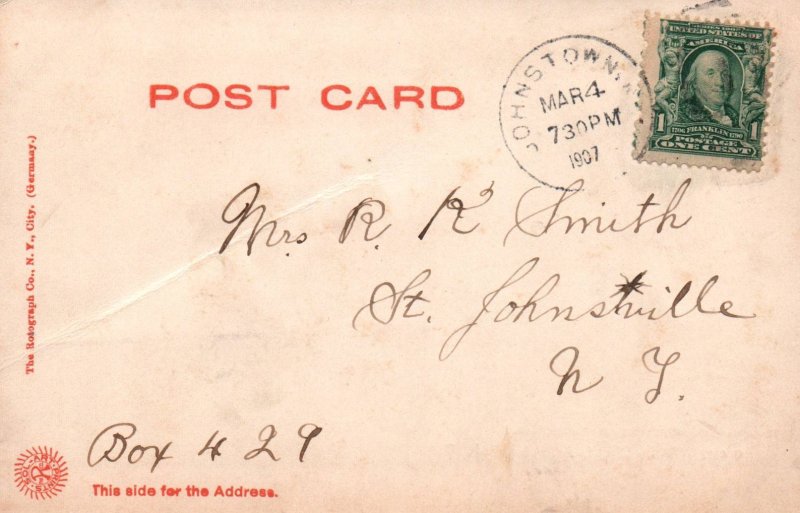 POST CARD
JOHNSTOWN, N.Y.
MAR 4
730 PM
1907
SERIES 1902
UNITED STATES OF
AMERICA
1706 FRANKLIN 1790
1 POSTAGE 1
ONE CENT
The Rotograph Co., N. Y., City. (Germany.)
Mrs R. R Smith
St. Johnsville
N Y.
Box 429
This side for the Address.